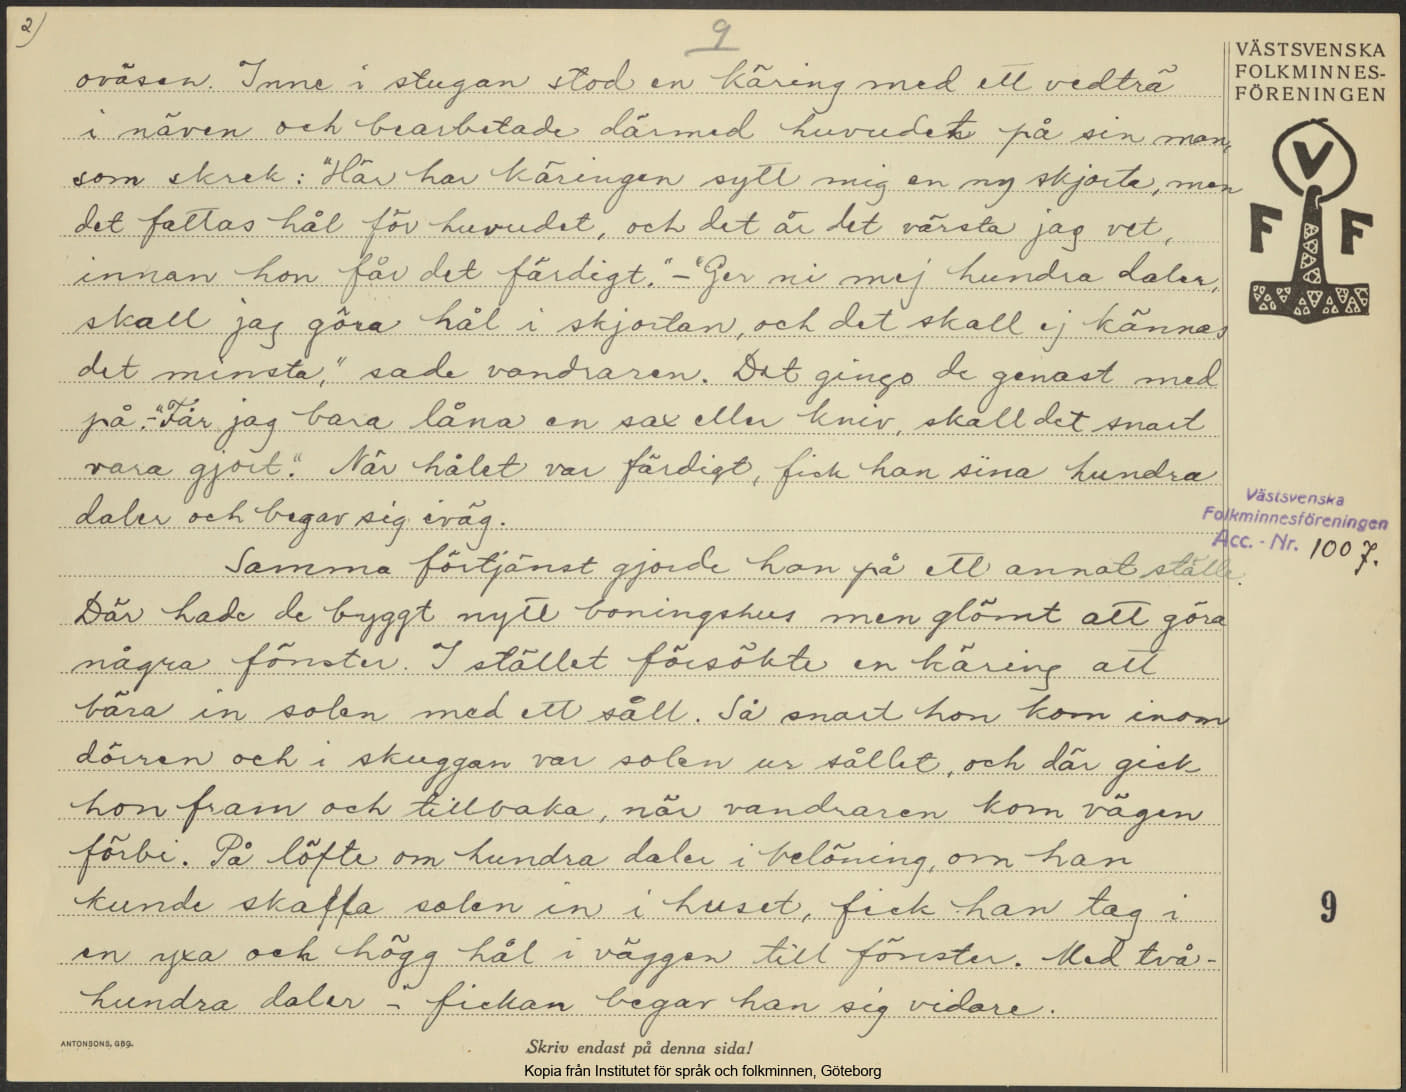 2)
9
VÄSTSVENSKA
FOLKMINNES-
FÖRENINGEN
V
F F
oväsen. Inne i stugan stod en käring med ett vedträ
i näven och bearbetade därmed huvudet på sin man,
som skrek: "Här har käringen sytt mig en ny skjorta, men
det fattas hål för huvudet, och det är det värsta jag vet,
innan hon får det färdigt." - "Ger ni mej hundra daler,
skall jag göra hål i skjortan, och det skall ej kännas
det minsta," sade vandraren. Det gingo de genast med
på. - "Får jag bara låna en sax eller kniv, skall det snart
vara gjort." När hålet var färdigt, fick han sina hundra
daler och begav sig iväg.
Samma förtjänst gjorde han på ett annat ställe.
Där hade de byggt nytt boningshus men glömt att göra
några fönster. I stället försökte en käring att
bära in solen med ett såll. Så snart hon kom inom
dörren och i skuggan var solen ur sållet, och där gick
hon fram och tillbaka, när vandraren kom vägen
förbi. På löfte om hundra daler i belöning, om han
kunde skaffa solen in i huset, fick han tag i
en yxa och högg hål i väggen till fönster. Med två-
hundra daler i fickan begav han sig vidare.
Västsvenska
Folkminnesföreningen
Acc. - Nr. 1007.
9
ANTONSONS, GBG.
Skriv endast på denna sida!
Kopia från Institutet för språk och folkminnen, Göteborg